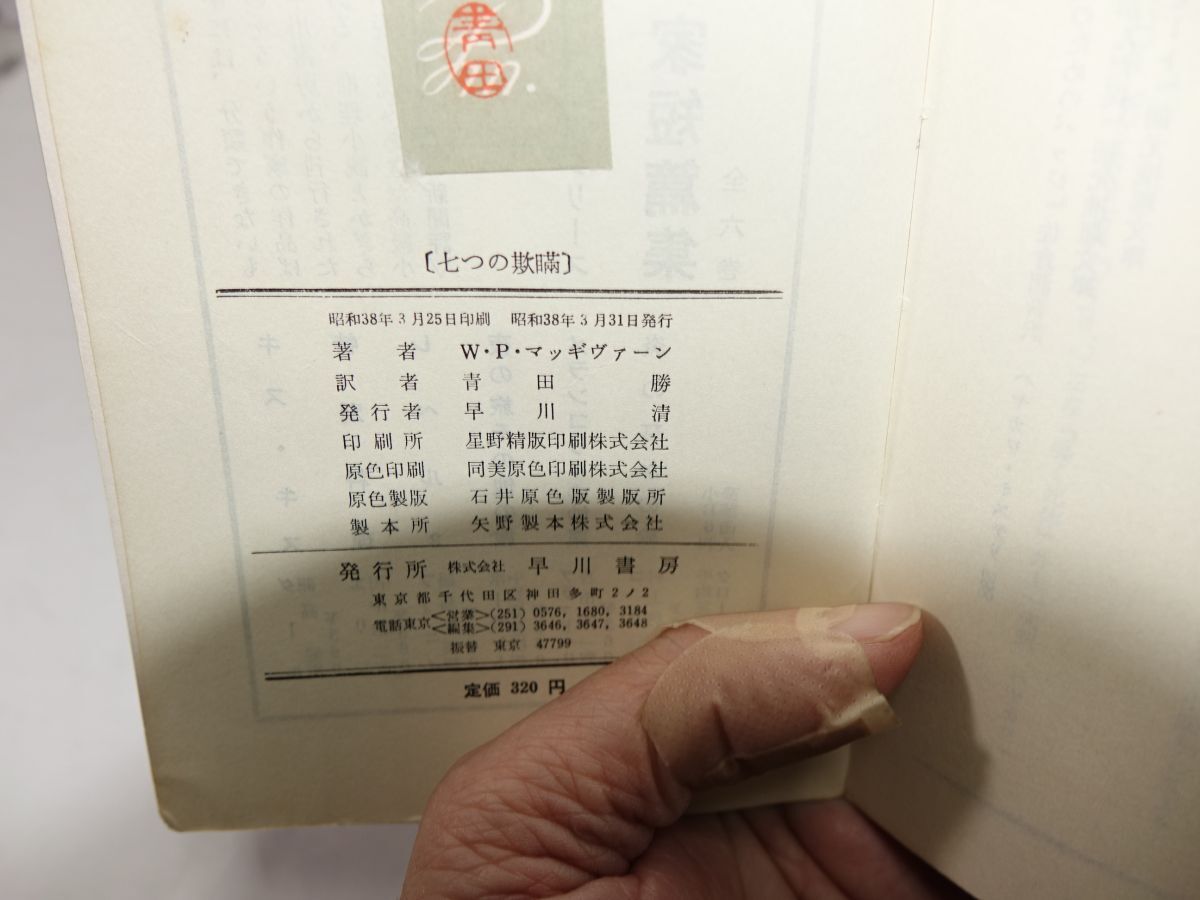 青田
〔七つの欺瞞〕
昭和38年3月25日印刷 昭和38年3月31日発行
著者 W・P・マッギヴァーン
訳者 青田勝
発行者 早川清
印刷所 星野精版印刷株式会社
原色印刷 同美原色印刷株式会社
原色製版 石井原色版製版所
製本所 矢野製本株式会社
発行所 株式会社 早川書房
東京都千代田区神田多町2ノ2
電話東京<営業>(251) 0576, 1680, 3184
<編集>(291) 3646, 3647, 3648
振替 東京 47799
定価 320 円